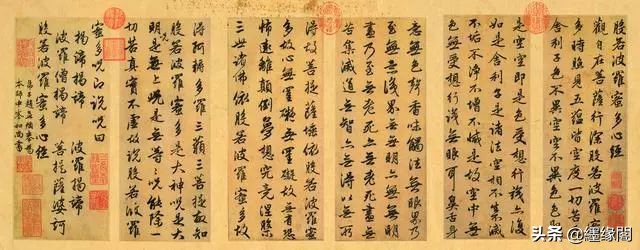 般若波羅蜜多心經
觀自在菩薩行深般若波羅蜜
多時照見五蘊皆空度一切苦厄
舍利子色不異空空不異色色即
是空空即是色受想行識亦復
如是舍利子是諸法空相不生不滅
不垢不淨不增不減是故空中無
色無受想行識無眼耳鼻舌身
意無色聲香味觸法無眼界乃
至無意識界無無明亦無無明
盡乃至無老死亦無老死盡無
苦集滅道無智亦無得以無所
得故菩提薩埵依般若波羅蜜
多故心無罣礙無罣礙故無有恐
怖遠離顛倒夢想究竟涅槃
三世諸佛依般若波羅蜜多故
得阿耨多羅三藐三菩提故知
般若波羅蜜多是大神咒是大
明咒是無上咒是無等等咒能除一
切苦真實不虛故說般若波羅
蜜多咒即說咒曰
揭諦揭諦 波羅揭諦
波羅僧揭諦 菩提薩婆訶
般若波羅蜜多心經
弟子趙孟頫奉為
本師中峯和尚書
头条 @墨緣閣